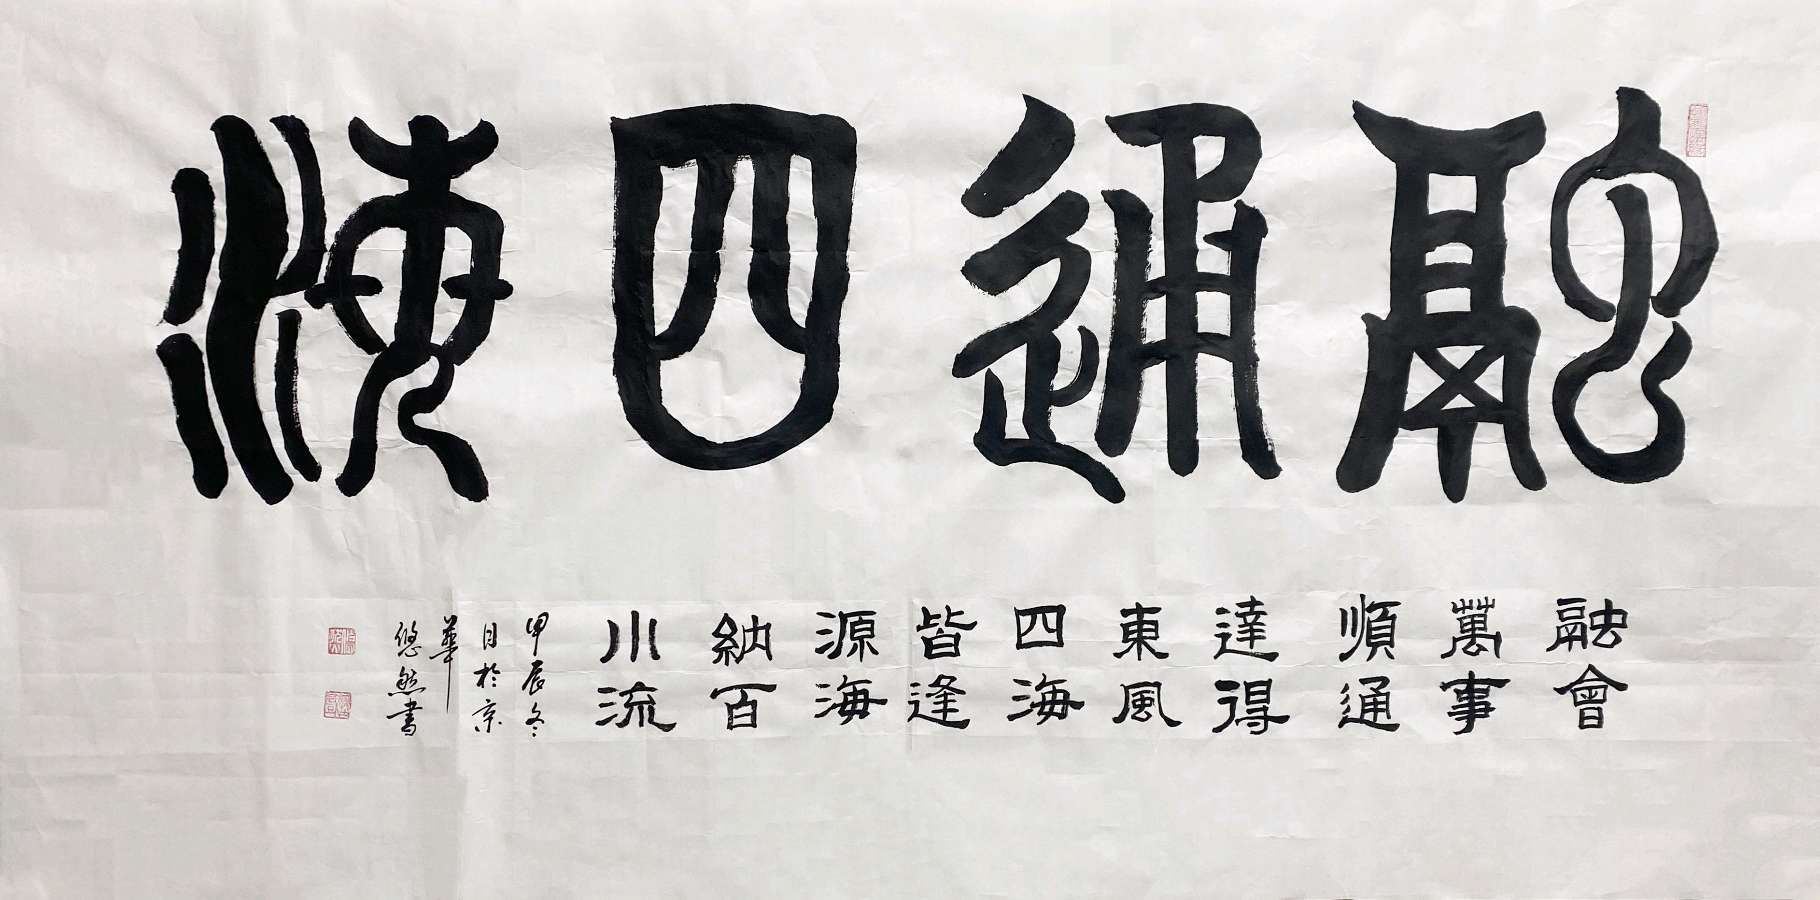 融通四海
融會
萬事
順通
達得
東風
四海
皆逢
源海
納百
川流
甲辰冬
月於京
華
悠然書